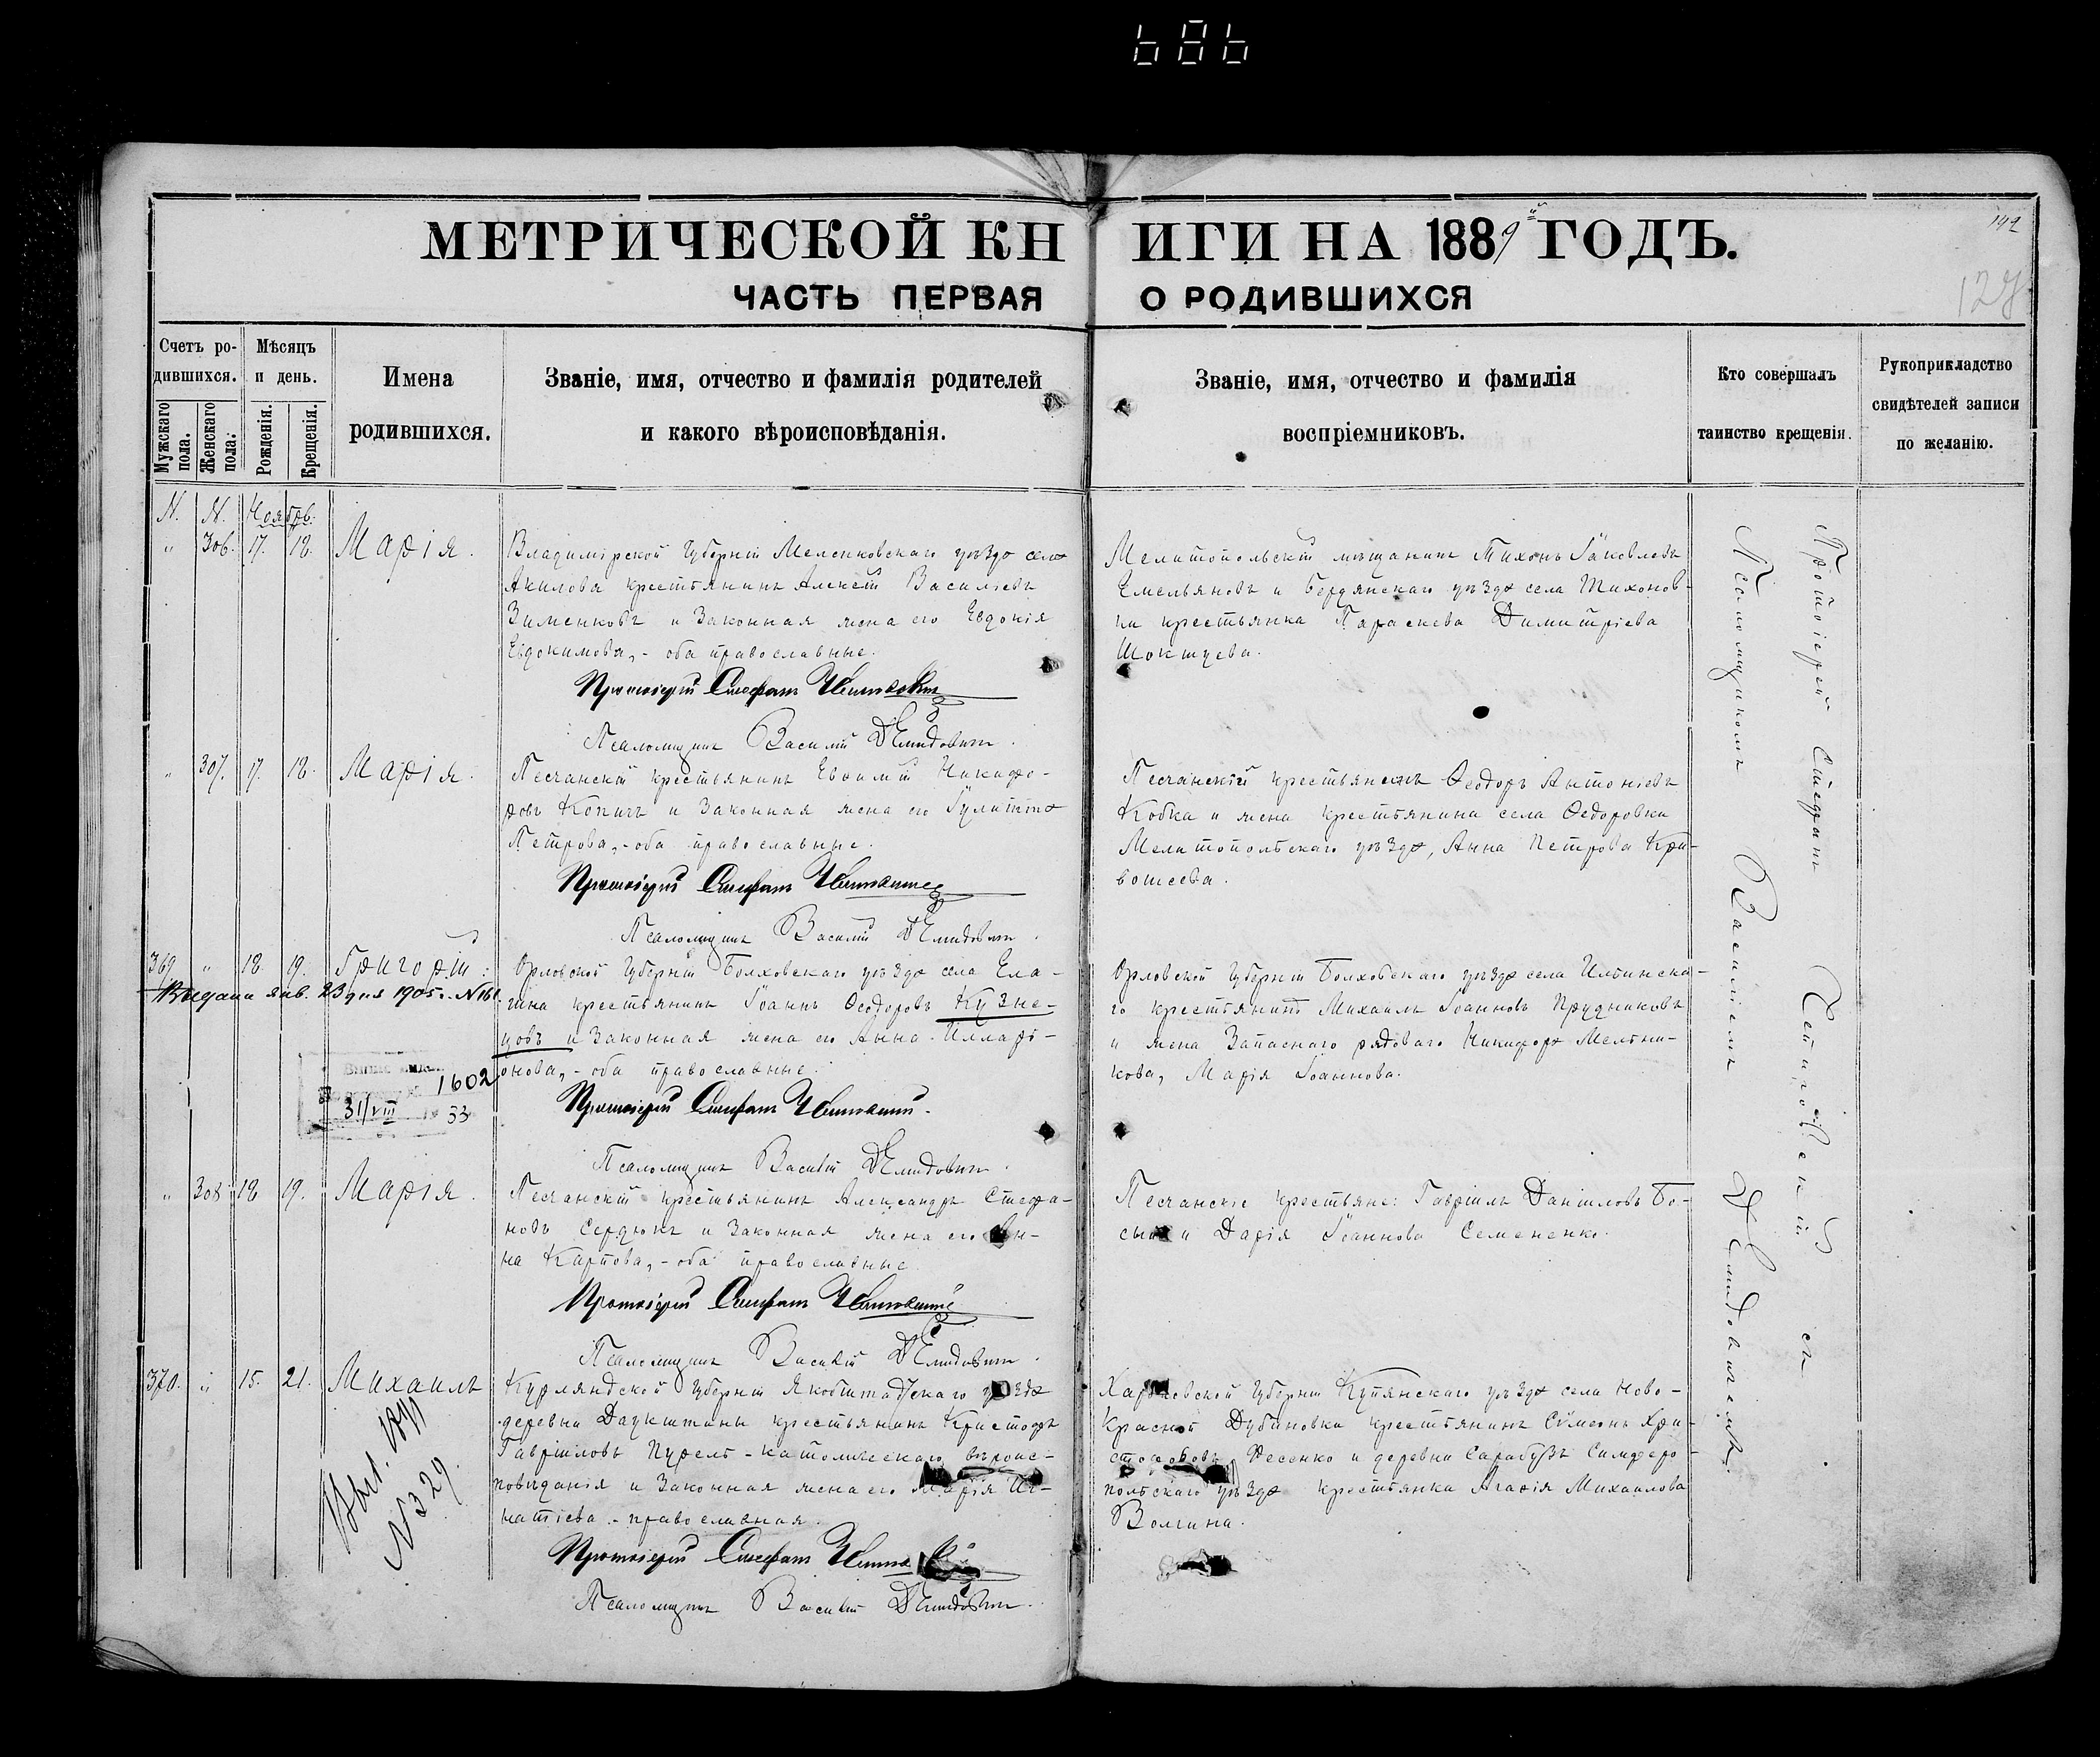 МЕТРИЧЕСКОЙ КНИГИ НА 1889й ГОДЪ.
142
ЧАСТЬ ПЕРВАЯ О РОДИВШИХСЯ
Счетъ родившихся.
Мужскаго пола.
Женскаго пола.
Мѣсяцъ и день.
Рожденія.
Крещенія.
Имена родившихся.
Званіе, имя, отчество и фамилія родителей
и какого вѣроисповѣданія.
Званіе, имя, отчество и фамилія
воспріемниковъ.
Кто совершалъ
таинство крещенія.
Рукоприкладство
свидѣтелей записи
по желанію.
N. N. Ноябр.
" 306. 17. 18. Марія.
Владимірской Губерніи Меленковскаго уѣзда села
Акилова крестьянинъ Алексѣй Васильевъ
Зименковъ и законная жена его Евдокія
Евдокимова, - оба православные.
Протоіерей Стефанъ
Псаломщикъ Василій
Мелитопольскій мѣщанинъ Тихонъ Іаковлевъ
Емельяновъ и Бердянскаго уѣзда села Тихонов-
ки крестьянка Параскева Димитріева
" 307. 17. 18. Марія.
Песчанскій крестьянинъ Евѳимій Никифо-
ровъ Копичъ и законная жена его Іулитта
Петрова, - оба православные.
Протоіерей Стефанъ
Псаломщикъ Василій
Песчанскій крестьянинъ Ѳеодоръ Антоніевъ
Кобка и жена крестьянина села Ѳедоровки
Мелитопольскаго уѣзда, Анна Петрова Кри-
вошеева.
369. " 18. 19. Григорій.
Выдана янв. 23 дня 1905 г. N 161.
1602
31/VIII 33
Орловской Губерніи Болховскаго уѣзда села Ела-
гина крестьянинъ Іоаннъ Ѳеодоровъ Кузне-
цовъ и законная жена его Анна Илларі-
онова, - оба православные.
Протоіерей Стефанъ
Псаломщикъ Василій
Орловской Губерніи Болховскаго уѣзда села Ильинска-
го крестьянинъ Михаилъ Іоанновъ Прудниковъ
и жена запаснаго рядоваго Никифора Мельни-
кова, Марія Іоаннова.
" 308 18 19. Марія.
Песчанскій крестьянинъ Александръ Стефа-
новъ Сердюкъ и законная жена его Ан-
на Карпова, - оба православные
Протоіерей Стефанъ
Псаломщикъ Василій
Песчанскіе крестьяне: Гавріилъ Даніиловъ Бо-
и Дарія Іоаннова Семененко.
370. " 15. 21. Михаилъ
N 329.
Курляндской Губерніи Якобштадскаго уѣзда
деревни Даукштаны крестьянинъ Кристофъ
Гавріиловъ Пурель - католическаго вѣроис-
повѣданія и законная жена его Марія Иг-
натіева - православная.
Протоіерей Стефанъ
Псаломщикъ Василій
Харьковской Губерніи Купянскаго уѣзда села Ново-
Красной Дубиновки крестьянинъ Сѵмеонъ Хри-
стофоровъ Фесенко и деревни Сарабузъ Симферо-
польскаго уѣзда крестьянка Агафія Михаилова
Волгина.
Протоіерей Стефанъ съ
Псаломщикомъ Василіемъ